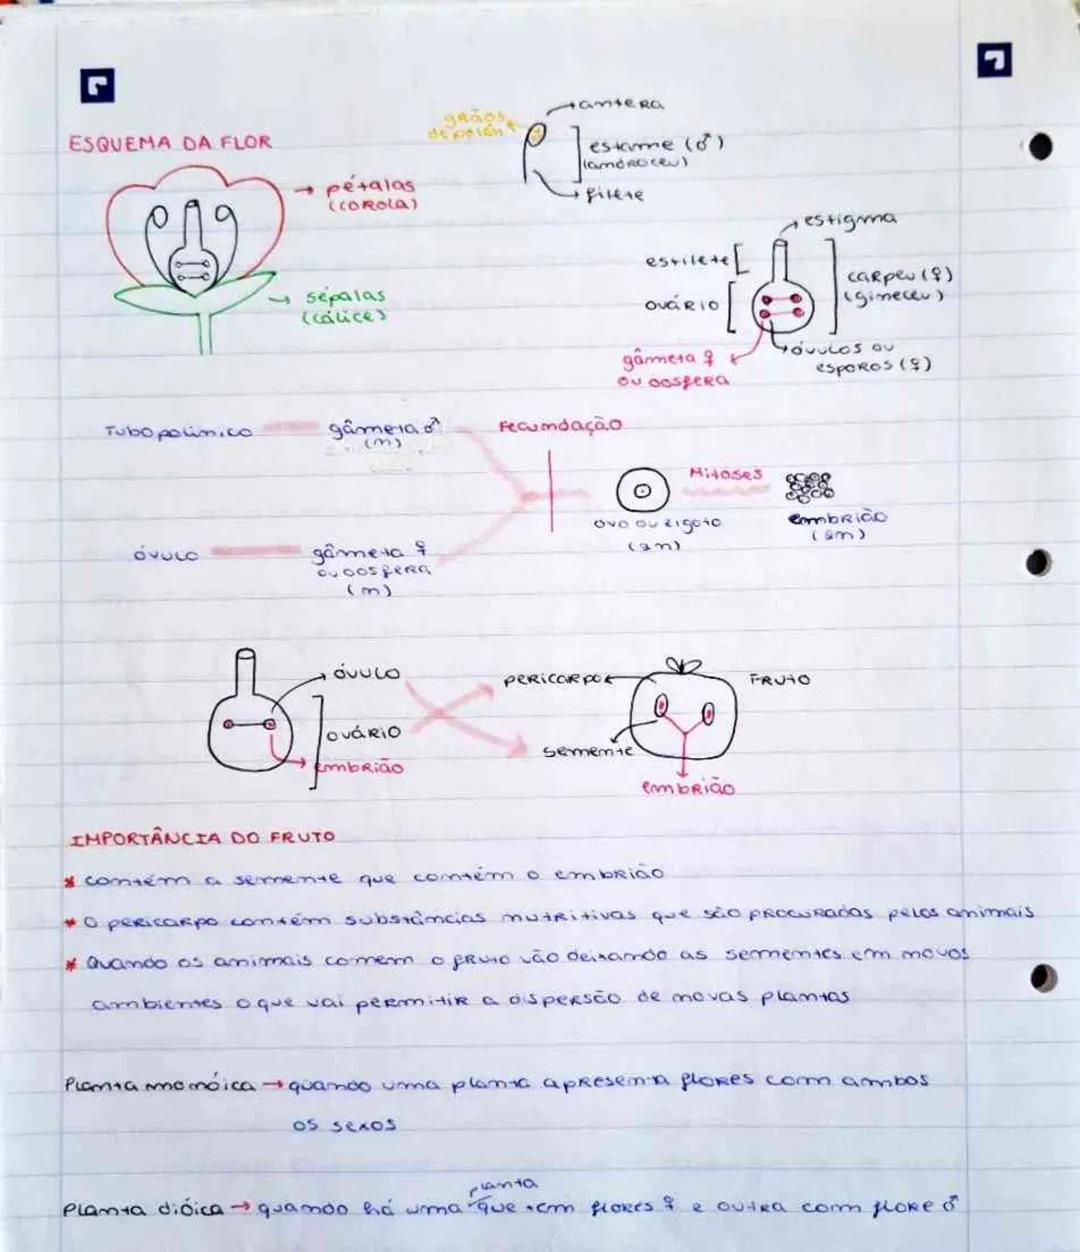 ESQUEMA DA FLOR
grãos
de polén
antera
estame (♂)
(androceu)
filete
pétalas
(COROLA)
sépalas
(cálice)
estigma
estilete
OVÁRIO
carpeu (♀)
(gineceu)
gâmeta ♀
ou oosfera
óvulos ou
esporos (♀)
Tubo polínico
gâmeta ♂
(n)
Fecundação
Mitoses
ovo ou zigoto
(2n)
embrião
(2n)
óvulo
gâmeta ♀
ou oosfera
(n)
óvulo
OVÁRIO
embrião
pericarpo
FRUTO
semente
embrião
IMPORTÂNCIA DO FRUTO
* contém a semente que contém o embrião
* O pericarpo contém substâncias nutritivas que são procuradas pelos animais
* Quando os animais comem o fruto vão deixando as sementes em novos
ambientes o que vai permitir a dispersão de novas plantas
Planta monóica → quando uma planta apresenta flores com ambos
os sexos
planta
Planta dióica → quando há uma que tem flores ♀ e outra com flore ♂